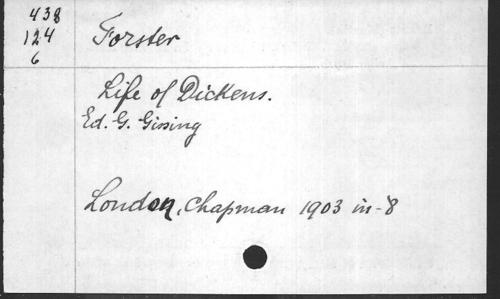 438
124
6
Forster
Life of Dickens.
Ed. G. Gissing
London, Chapman 1903 in-8